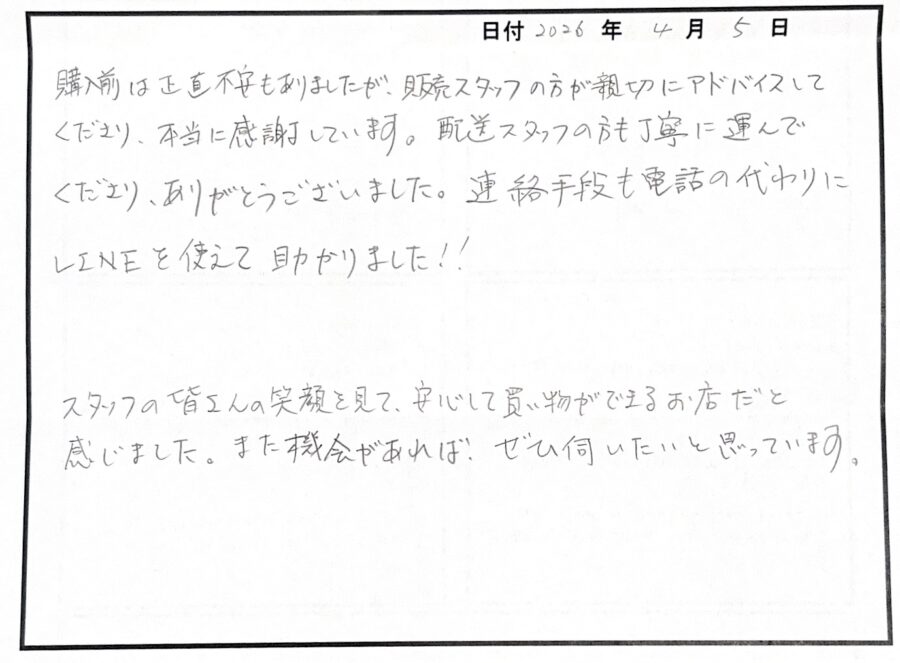 日付 2026 年 4 月 5 日
購入前は正直不安もありましたが、販売スタッフの方が親切にアドバイスして
くださり、本当に感謝しています。配送スタッフの方も丁寧に運んで
くださり、ありがとうございました。連絡手段も電話の代わりに
LINEを使えて助かりました!!
スタッフの皆さんの笑顔を見て、安心して買い物ができるお店だと
感じました。また機会があれば、ぜひ伺いたいと思っています。